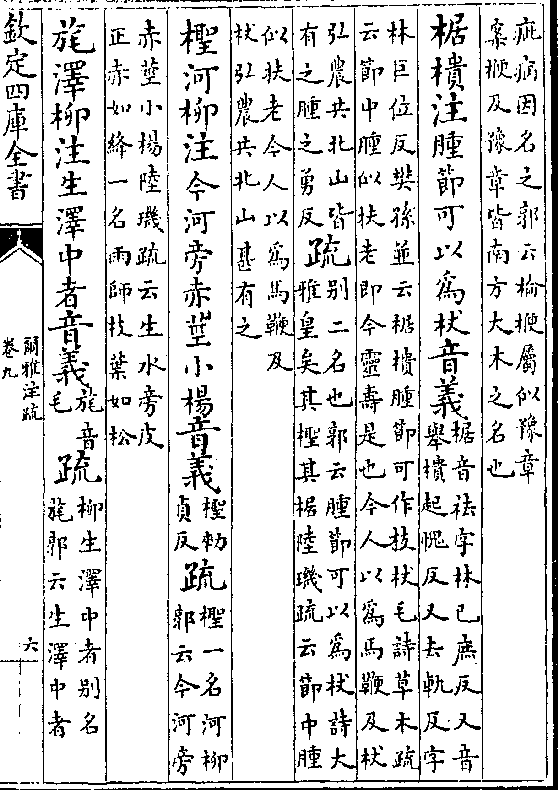 疵病因名之郭云楡楩屬似豫章
案楩及豫章皆南方大木之名也
椐樻注腫節可以爲杖音義
椐音祛字林已庶反又音
舉樻起愧反又去軌反字
林巨位反樊孫並云椐樻腫節可作杖毛詩草木疏
云節中腫似扶老即今靈壽是也今人以爲馬鞭及杖
弘農共北山皆
有之腫之勇反
疏
别二名也郭云腫節可以爲杖詩大
雅皇矣其檉其椐陸璣疏云節中腫
似扶老今人以爲馬鞭及
杖弘農共北山甚有之
檉河柳注今河旁赤莖小楊音義
檉勑
貞反
疏
檉一名河柳
郭云今河旁
赤莖小楊陸璣疏云生水旁皮
正赤如絳一名雨師枝葉如松
旄澤柳注生澤中者音義
旄音
毛
疏
柳生澤中者别名
旄郭云生澤中者
欽定四庫全書
爾雅注疏
卷九
六